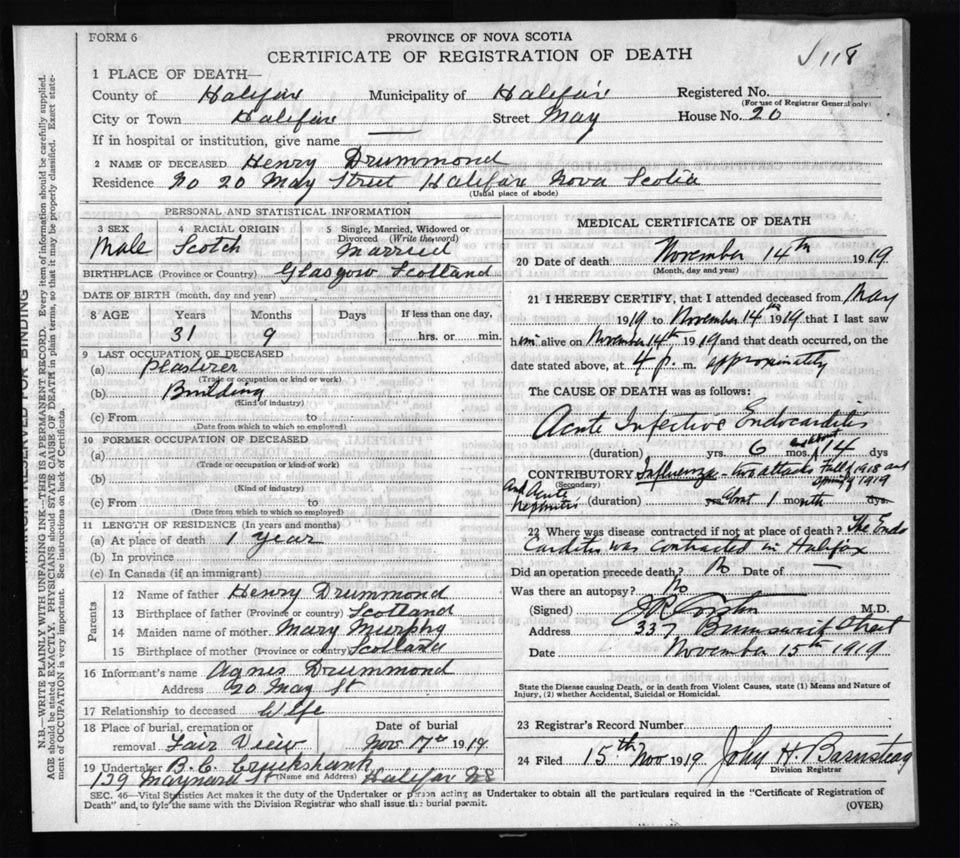 FORM 6
PROVINCE OF NOVA SCOTIA
CERTIFICATE OF REGISTRATION OF DEATH
118
1 PLACE OF DEATH—
County of Halifax Municipality of Halifax Registered No.
(For use of Registrar General only)
City or Town Halifax Street May House No. 20
If in hospital or institution, give name —
2 NAME OF DECEASED Henry Drummond
Residence No 20 May Street Halifax Nova Scotia
(Usual place of abode)
PERSONAL AND STATISTICAL INFORMATION
3 SEX 4 RACIAL ORIGIN 5 Single, Married, Widowed or Divorced (Write the word)
Male Scotch Married
BIRTHPLACE (Province or Country) Glasgow Scotland
DATE OF BIRTH (month, day and year)
8 AGE Years Months Days If less than one day,
31 9 hrs. or min.
9 LAST OCCUPATION OF DECEASED
(a) Plasterer
(Trade or occupation or kind or work)
(b) Building
(Kind of industry)
(c) From to
(Date from which to which so employed)
10 FORMER OCCUPATION OF DECEASED
(a)
(Trade or occupation or kind or work)
(b)
(Kind of industry)
(c) From to
(Date from which to which so employed)
11 LENGTH OF RESIDENCE (In years and months)
(a) At place of death 1 year
(b) In province
(c) In Canada (if an immigrant)
Parents
12 Name of father Henry Drummond
13 Birthplace of father (Province or country) Scotland
14 Maiden name of mother Mary Murphy
15 Birthplace of mother (Province or country) Scotland
16 Informant's name Agnes Drummond
Address 20 May St
17 Relationship to deceased Wife
18 Place of burial, cremation or removal Fair View
Date of burial
Nov 17th 1919
19 Undertaker B. C. Cruikshank
129 Maynard St (Name and Address) Halifax NS
MEDICAL CERTIFICATE OF DEATH
20 Date of death November 14th 1919
(Month, day and year)
21 I HEREBY CERTIFY, that I attended deceased from May
1919 to November 14th 1919 that I last saw
him alive on November 14th 1919 and that death occurred, on the
date stated above, at 4 p. m. approximately
The CAUSE OF DEATH was as follows:
Acute Infective Endocarditis
(duration) yrs. 6 mos. and about 14 dys
CONTRIBUTORY Influenza - two attacks Fall of 1918 and Spring of 1919
(Secondary)
and Acute Nephritis (duration) yrs. about 1 month dys.
22 Where was disease contracted if not at place of death? The Endo
Carditis was contracted in Halifax
Did an operation precede death? No Date of —
Was there an autopsy? No
(Signed) M.D.
Address 337 Brunswick Street
Date November 15th 1919
State the Disease causing Death, or in death from Violent Causes, state (1) Means and Nature of Injury, (2) whether Accidental, Suicidal or Homicidal.
23 Registrar's Record Number
24 Filed 15th Nov 1919 John H Barnstead
Division Registrar
SEC. 46—Vital Statistics Act makes it the duty of the Undertaker or person acting as Undertaker to obtain all the particulars required in the "Certificate of Registration of
Death" and, to fyle the same with the Division Registrar who shall issue the burial permit. (OVER)
MARGIN RESERVED FOR BINDING
N.B.—WRITE PLAINLY WITH UNFADING INK—THIS IS A PERMANENT RECORD. Every item of information should be carefully supplied.
AGE should be stated EXACTLY. PHYSICIANS should STATE CAUSE OF DEATH in plain terms, so that it may be properly classified. Exact state-
ment of OCCUPATION is very important. See instructions on back of Certificate.